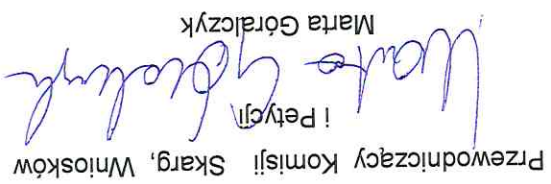 Przewodniczący Komisji Skarg, Wniosków
i Petycji
Marta Góralczyk
Marta Góralczyk